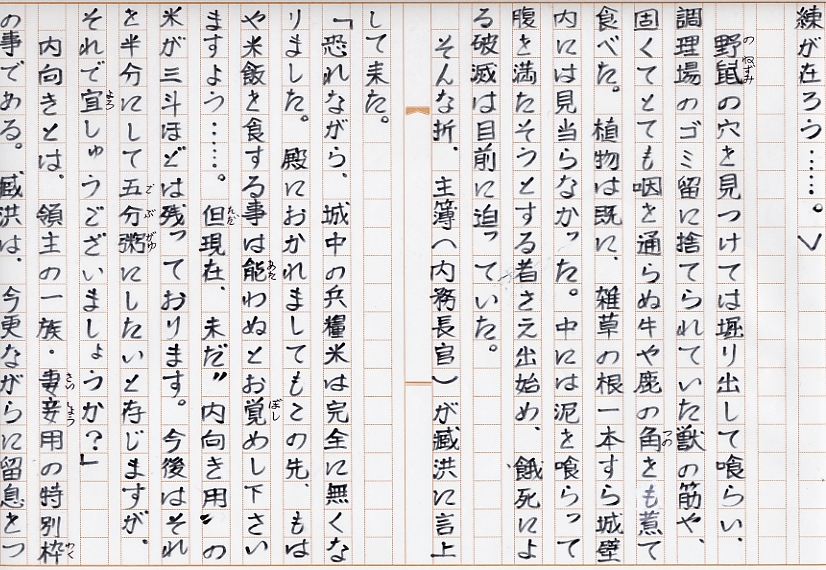 練が在ろう……。＞
野鼠の穴を見つけては堀り出して喰らい、
調理場のゴミ留に捨てられていた獣の筋や、
固くてとても咽を通らぬ牛や鹿の角をも煮て
食べた。植物は既に、雑草の根一本すら城壁
内には見当らなかった。中には泥を喰らって
腹を満たそうとする者さえ出始め、餓死によ
る破滅は目前に迫っていた。
そんな折、主簿（内務長官）が臧洪に言上
して来た。
「恐れながら、城中の兵糧米は完全に無くな
りました。殿におかれましてもこの先、もは
や米飯を食する事は能わぬとお覚めし下さい
ますよう……。但現在、未だ〝内向き用〟の
米が三斗ほどは残っております。今後はそれ
を半分にして五分粥にしたいと存じますが、
それで宜しゅうございましょうか？」
内向きとは、領主の一族・妻妾用の特別枠
の事である。臧洪は、今更ながらに留息をつ